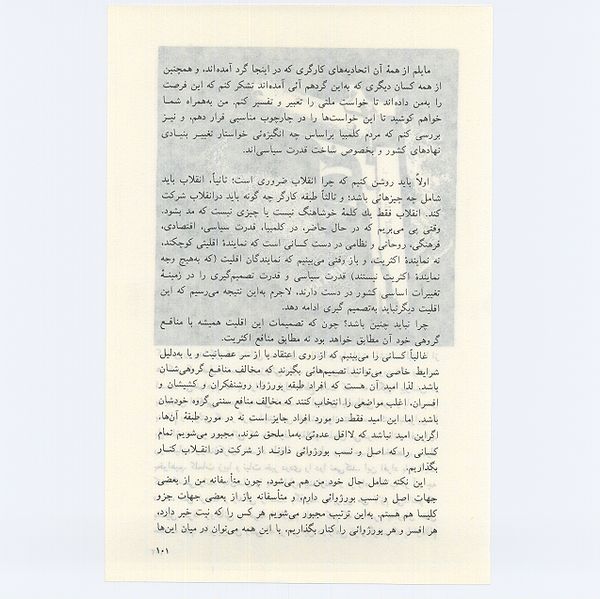 مایلم از همهٔ آن اتحادیه‌های کارگری که در اینجا گرد آمده‌اند، و همچنین
از همه کسان دیگری که به‌این گردهم آئی آمده‌اند تشکر کنم که این فرصت
را به‌من داده‌اند تا خواست ملتی را تعبیر و تفسیر کنم. من به‌همراه شما
خواهم کوشید تا این خواست‌ها را در چارچوب مناسبی قرار دهم، و نیز
بررسی کنم که مردم کلمبیا براساس چه انگیزه‌ئی خواستار تغییر بنیادی
نهادهای کشور و بخصوص ساخت قدرت سیاسی‌اند.
اولاً باید روشن کنیم که چرا انقلاب ضروری است؛ ثانیاً، انقلاب باید
شامل چه چیزهائی باشد؛ و ثالثاً طبقه کارگر چه گونه باید درانقلاب شرکت
کند. انقلاب فقط یك کلمهٔ خوشاهنگ نیست یا چیزی نیست که مد بشود.
وقتی پی می‌بریم که در حال حاضر، در کلمبیا، قدرت سیاسی، اقتصادی،
فرهنگی، روحانی و نظامی در دست کسانی است که نمایندهٔ اقلیتی کوچکند،
نه نمایندهٔ اکثریت، و باز وقتی می‌بینیم که نمایندگان اقلیت (که به‌هیچ وجه
نمایندهٔ اکثریت نیستند) قدرت سیاسی و قدرت تصمیم‌گیری را در زمینهٔ
تغییرات اساسی کشور در دست دارند، لاجرم به‌این نتیجه می‌رسیم که این
اقلیت دیگرنباید به‌تصمیم گیری ادامه دهد.
چرا نباید چنین باشد؟ چون که تصمیمات این اقلیت همیشه با منافع
گروهی خود آن مطابق خواهد بود نه مطابق منافع اکثریت.
غالباً کسانی را می‌بینیم که از روی اعتقاد یا از سر عصبانیت و یا به‌دلیل
شرایط خاصی می‌توانند تصمیم‌هائی بگیرند که مخالف منافع گروهی‌شان
باشد. لذا امید آن هست که افراد طبقه بورژوا، روشنفکران و کشیشان و
افسران، اغلب مواضعی را انتخاب کنند که مخالف منافع سنتی گروه خودشان
باشد. اما این امید فقط در مورد افراد جایز است نه در مورد طبقهٔ آن‌ها.
اگراین امید نباشد که لااقل عده‌ئی به‌ما ملحق شوند، مجبور می‌شویم تمام
کسانی را که اصل و نسب بورژوائی دارند از شرکت در انقلاب کنار
بگذاریم.
این نکته شامل حال خود من هم می‌شود، چون متأسفانه من از بعضی
جهات اصل و نسب بورژوائی دارم، و متأسفانه باز از بعضی جهات جزو
کلیسا هم هستم. به‌این ترتیب مجبور می‌شویم هر کس را که نیت خیر دارد،
هر افسر و هر بورژوائی را کنار بگذاریم. با این همه می‌توان در میان این‌ها
۱۰۱